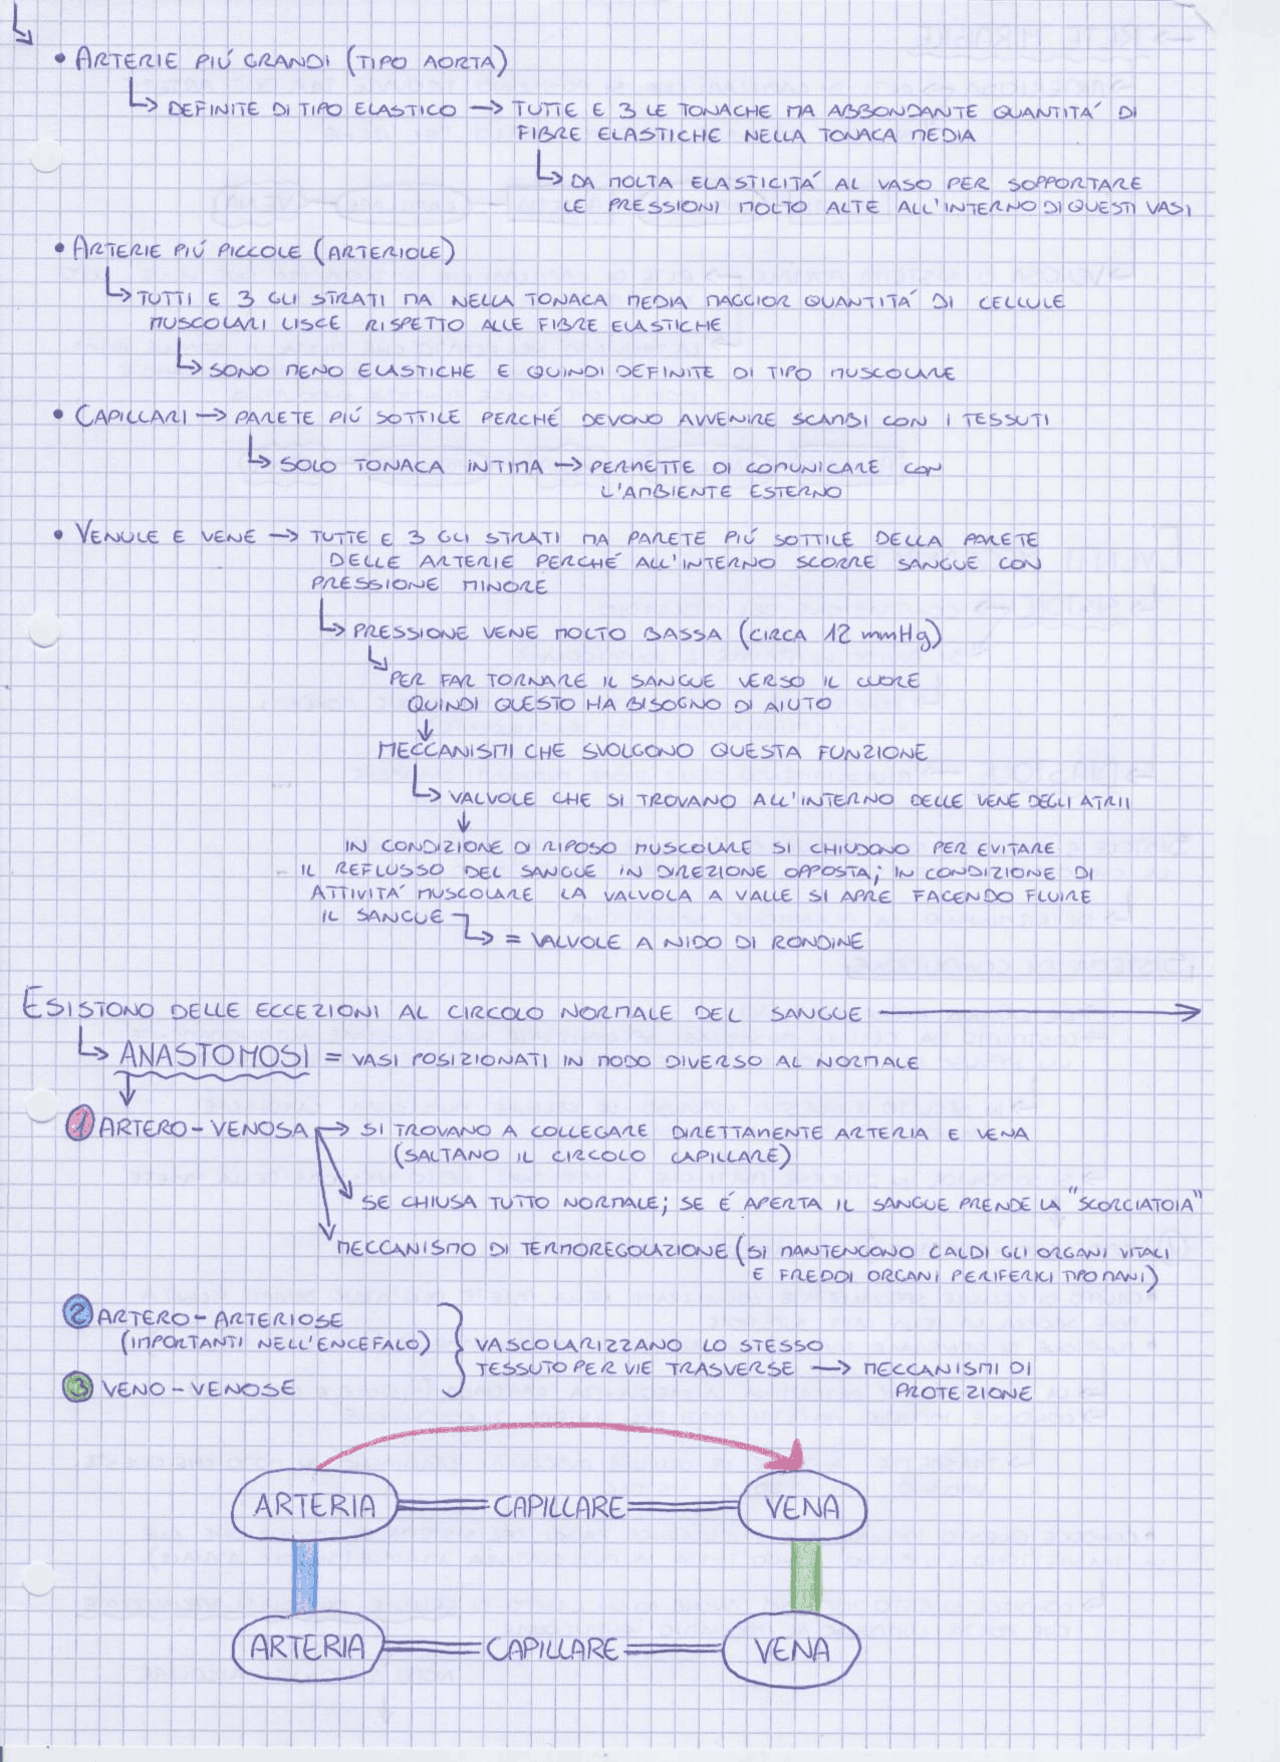 • ARTERIE PIÚ GRANDI (TIPO AORTA)
↳ DEFINITE DI TIPO ELASTICO → TUTTE E 3 LE TONACHE MA ABBONDANTE QUANTITÁ DI
FIBRE ELASTICHE NELLA TONACA MEDIA
↳ DA MOLTA ELASTICITÁ AL VASO PER SOPPORTARE
LE PRESSIONI MOLTO ALTE ALL'INTERNO DI QUESTI VASI
• ARTERIE PIÚ PICCOLE (ARTERIOLE)
↳ TUTTI E 3 GLI STRATI MA NELLA TONACA MEDIA MAGGIOR QUANTITÁ DI CELLULE
MUSCOLARI LISCE RISPETTO ALLE FIBRE ELASTICHE
↳ SONO MENO ELASTICHE E QUINDI DEFINITE DI TIPO MUSCOLARE
• CAPILLARI → PARETE PIÚ SOTTILE PERCHÉ DEVONO AVVENIRE SCAMBI CON I TESSUTI
↳ SOLO TONACA INTIMA → PERMETTE DI COMUNICARE CON
L'AMBIENTE ESTERNO
• VENULE E VENE → TUTTE E 3 GLI STRATI MA PARETE PIÚ SOTTILE DELLA PARETE
DELLE ARTERIE PERCHÉ ALL'INTERNO SCORRE SANGUE CON
PRESSIONE MINORE
↳ PRESSIONE VENE MOLTO BASSA (CIRCA 12 mmHg)
↳ PER FAR TORNARE IL SANGUE VERSO IL CUORE
QUINDI QUESTO HA BISOGNO DI AIUTO
↓
MECCANISMI CHE SVOLGONO QUESTA FUNZIONE
↳ VALVOLE CHE SI TROVANO ALL'INTERNO DELLE VENE DEGLI ATRII
↓
IN CONDIZIONE DI RIPOSO MUSCOLARE SI CHIUDONO PER EVITARE
IL REFLUSSO DEL SANGUE IN DIREZIONE OPPOSTA; IN CONDIZIONE DI
ATTIVITÁ MUSCOLARE LA VALVOLA A VALLE SI APRE FACENDO FLUIRE
IL SANGUE
↳ = VALVOLE A NIDO DI RONDINE
ESISTONO DELLE ECCEZIONI AL CIRCOLO NORMALE DEL SANGUE →
↳ ANASTOMOSI = VASI POSIZIONATI IN MODO DIVERSO AL NORMALE
↓
1 ARTERO-VENOSA → SI TROVANO A COLLEGARE DIRETTAMENTE ARTERIA E VENA
(SALTANO IL CIRCOLO CAPILLARE)
SE CHIUSA TUTTO NORMALE; SE É APERTA IL SANGUE PRENDE LA "SCORCIATOIA"
MECCANISMO DI TERMOREGOLAZIONE (SI MANTENGONO CALDI GLI ORGANI VITALI
E FREDDI ORGANI PERIFERICI TIPO MANI)
2 ARTERO-ARTERIOSE
(IMPORTANTI NELL'ENCEFALO)
3 VENO-VENOSE
VASCOLARIZZANO LO STESSO
TESSUTO PER VIE TRASVERSE → MECCANISMI DI
PROTEZIONE
ARTERIA CAPILLARE VENA
ARTERIA CAPILLARE VENA